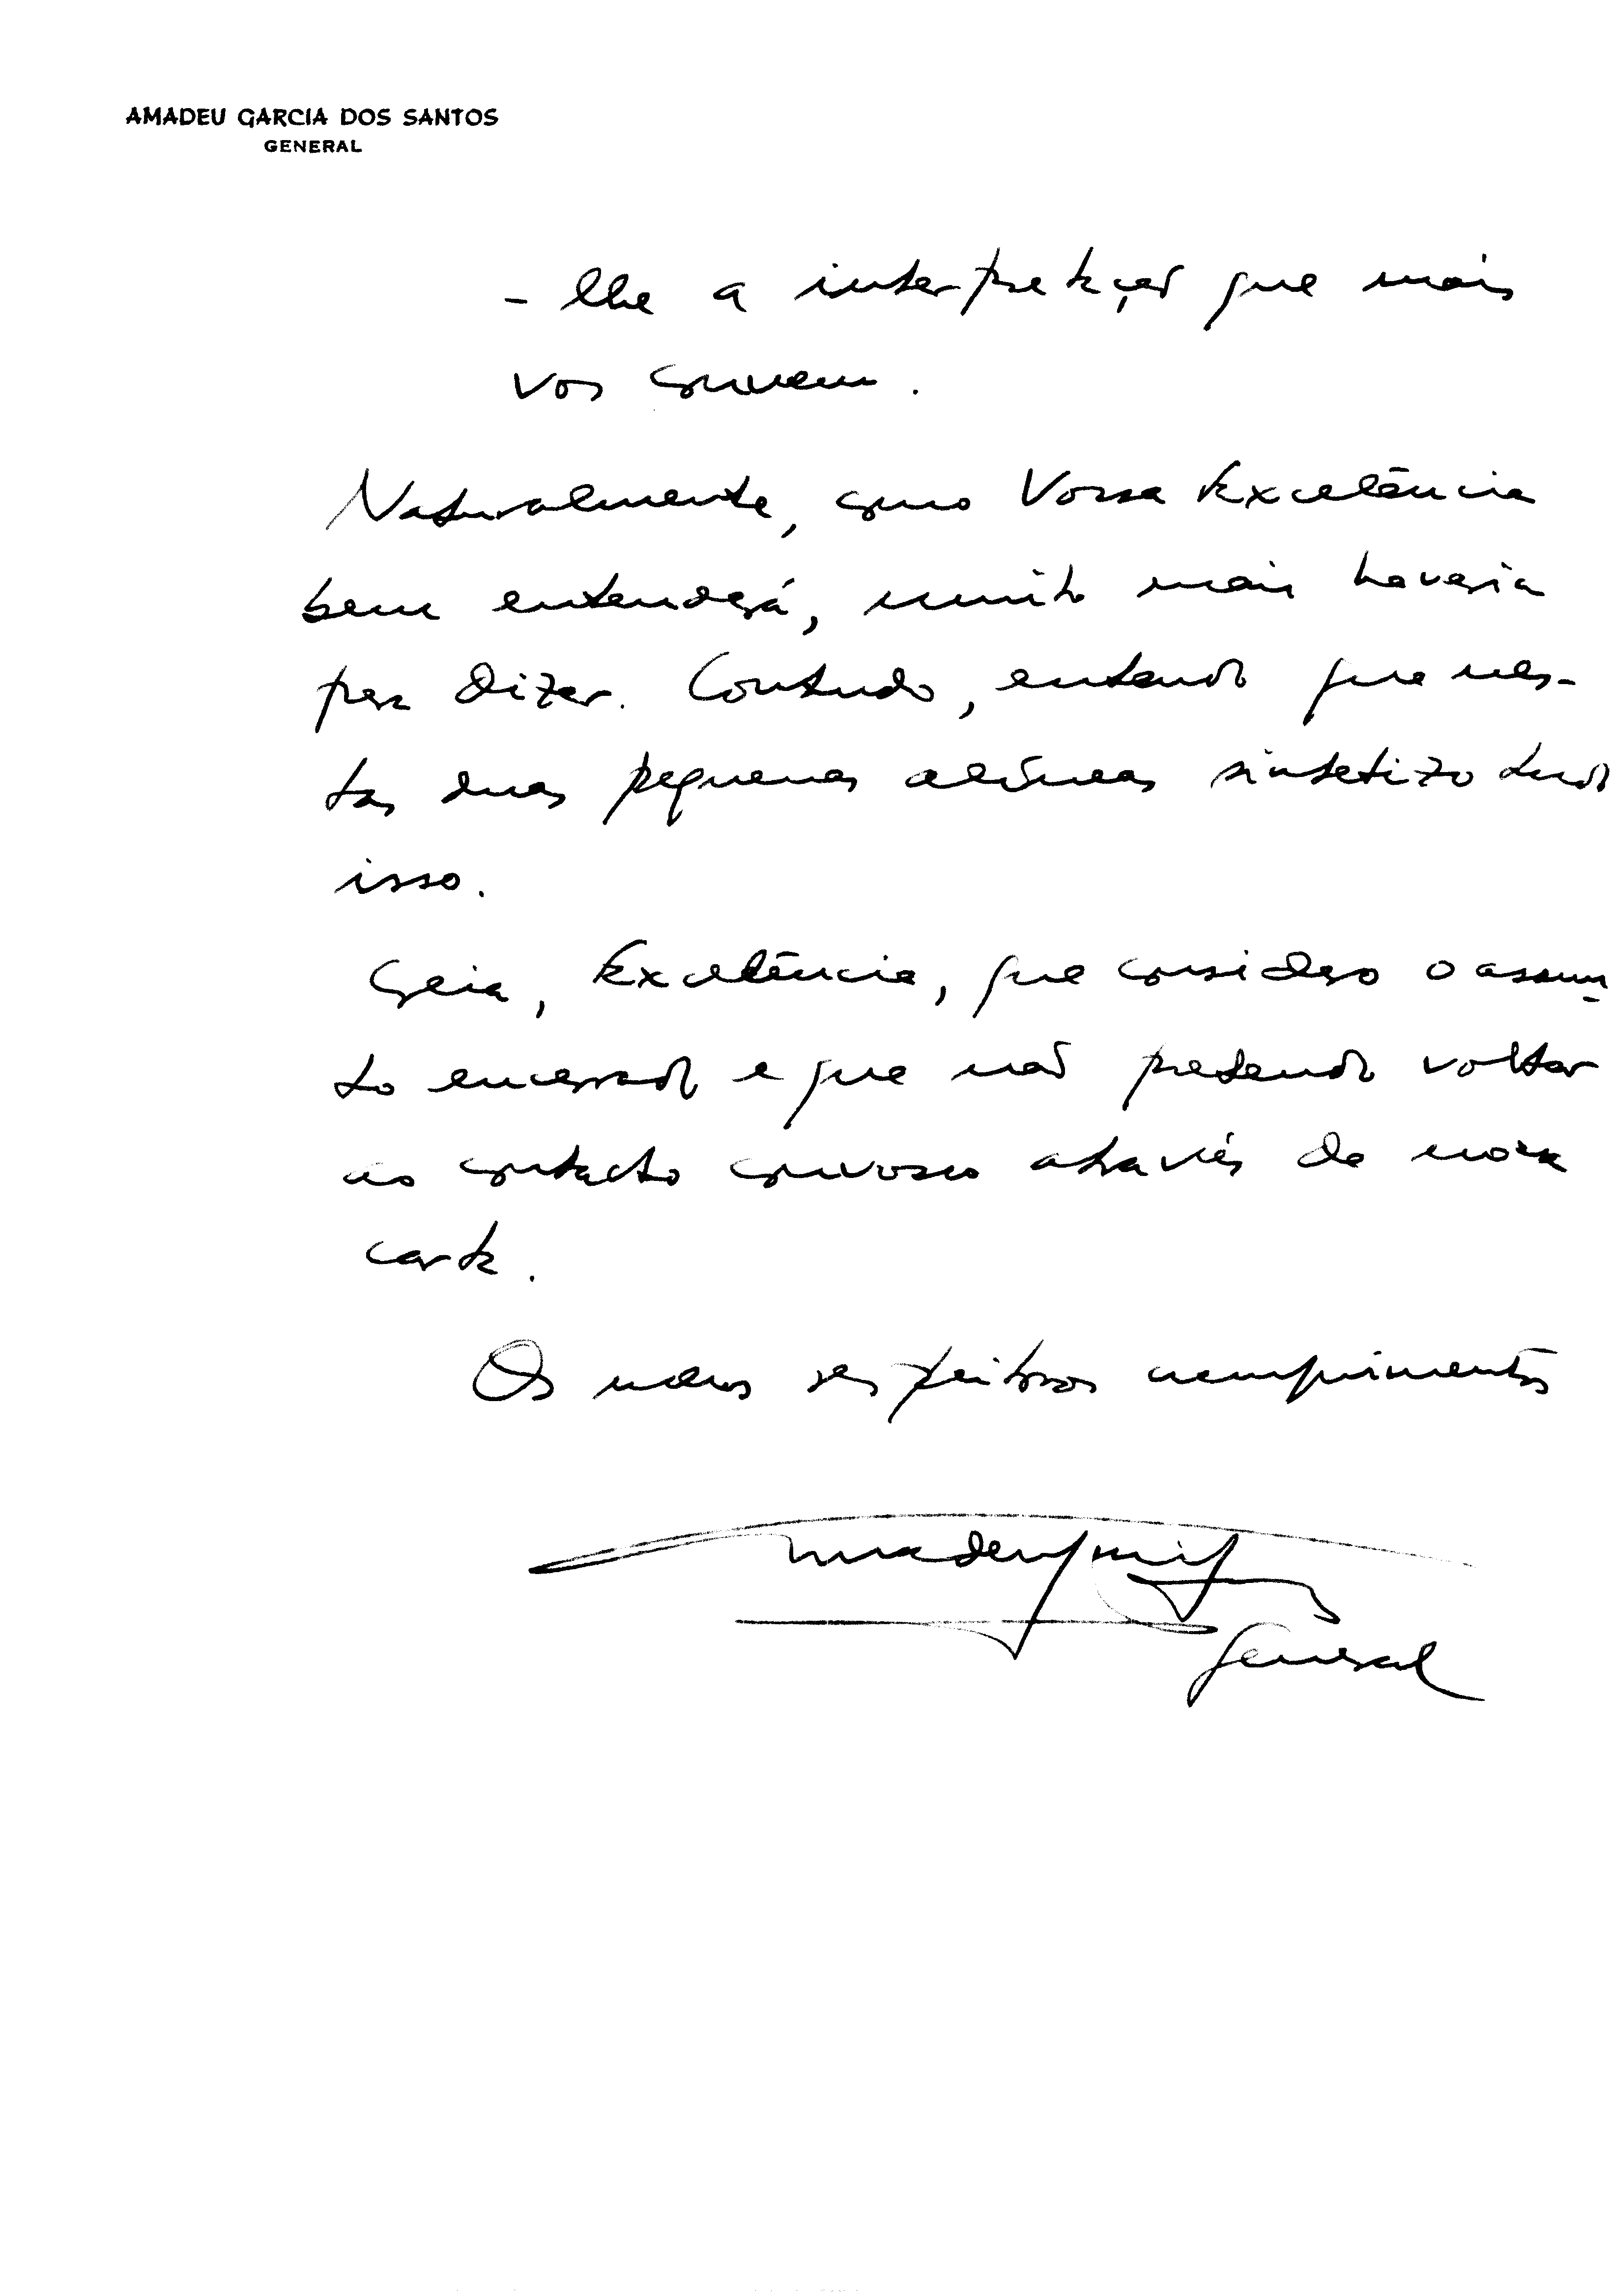 AMADEU GARCIA DOS SANTOS
GENERAL
- lhe a interpretação que mais
vos convem.
Naturalmente, como Vossa Excelência
bem entenderá, muito mais haveria
para dizer. Contudo, entendo que nes-
tas duas pequenas alíneas sintetizo tudo
isso.
Creia, Excelência, que considero o assun-
to encerrado e que não pretendo voltar
ao contacto convosco através de nova
carta.
Os meus respeitosos cumprimentos
General